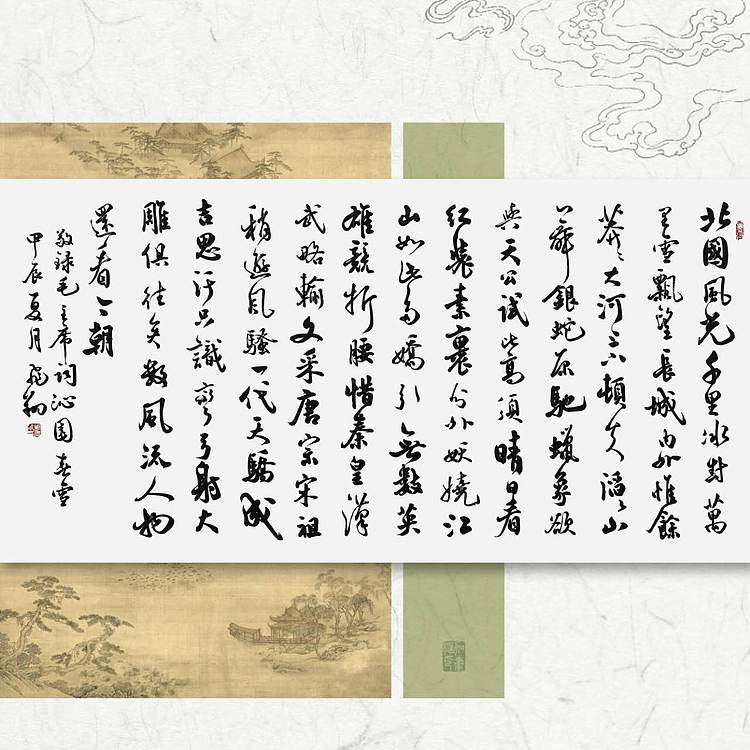 北國風光千里冰封萬
里雪飄望長城內外惟餘
莽々大河上下頓失滔々山
舞銀蛇原馳蠟象欲
與天公試比高須晴日看
紅裝素裹分外妖嬈江
山如此多嬌引無數英
雄競折腰惜秦皇漢
武略輸文采唐宗宋祖
稍遜風騷一代天驕成
吉思汗只識彎弓射大
雕俱往矣數風流人物
還看今朝
敬錄毛主席詞沁園春雪
甲辰夏月